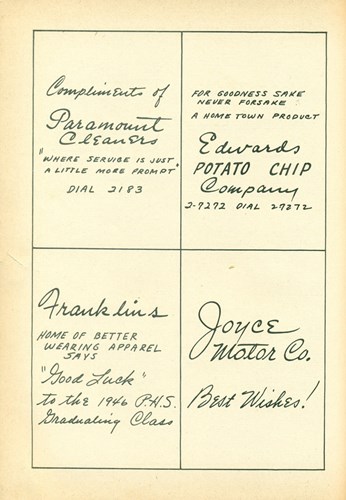 Compliments of
Paramount
Cleaners
"WHERE SERVICE IS JUST
A LITTLE MORE PROMPT"
DIAL 2183
FOR GOODNESS SAKE
NEVER FORSAKE
A HOME TOWN PRODUCT
Edwards
POTATO CHIP
Company
2-7272 DIAL 27272
Franklins
HOME OF BETTER
WEARING APPAREL
SAYS
"Good Luck"
to the 1946 P.H.S.
Graduating Class
Joyce
Motor Co.
Best Wishes!